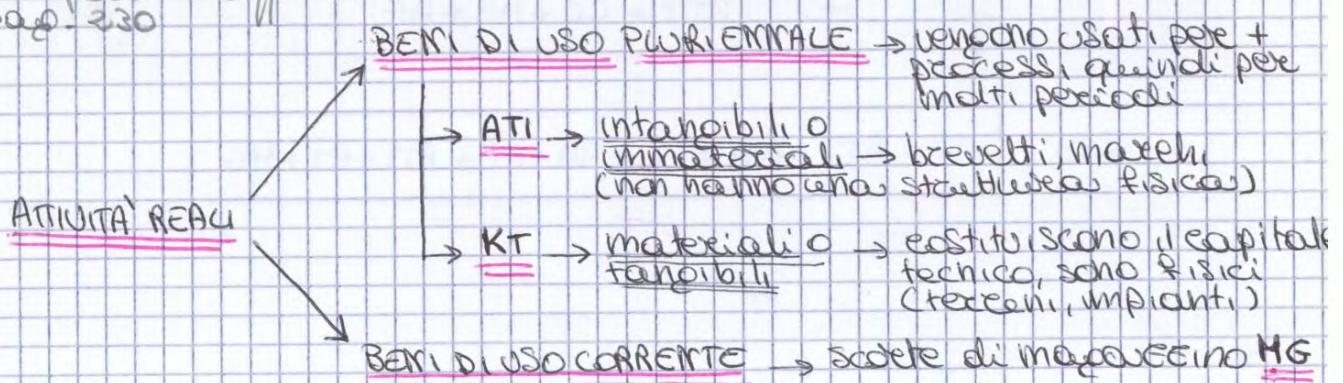 pag. 230
BENI DI USO PLURIENNALE → vengono usati per +
processi, quindi per
molti periodi
→ ATI → intangibili o
immateriali → brevetti, marchi
(non hanno una struttura fisica)
ATTIVITÀ REALI
→ KT → materiali o → costituiscono il capitale
tangibili tecnico, sono fisici
(terreni, impianti)
BENI DI USO CORRENTE → scorte di magazzino MG